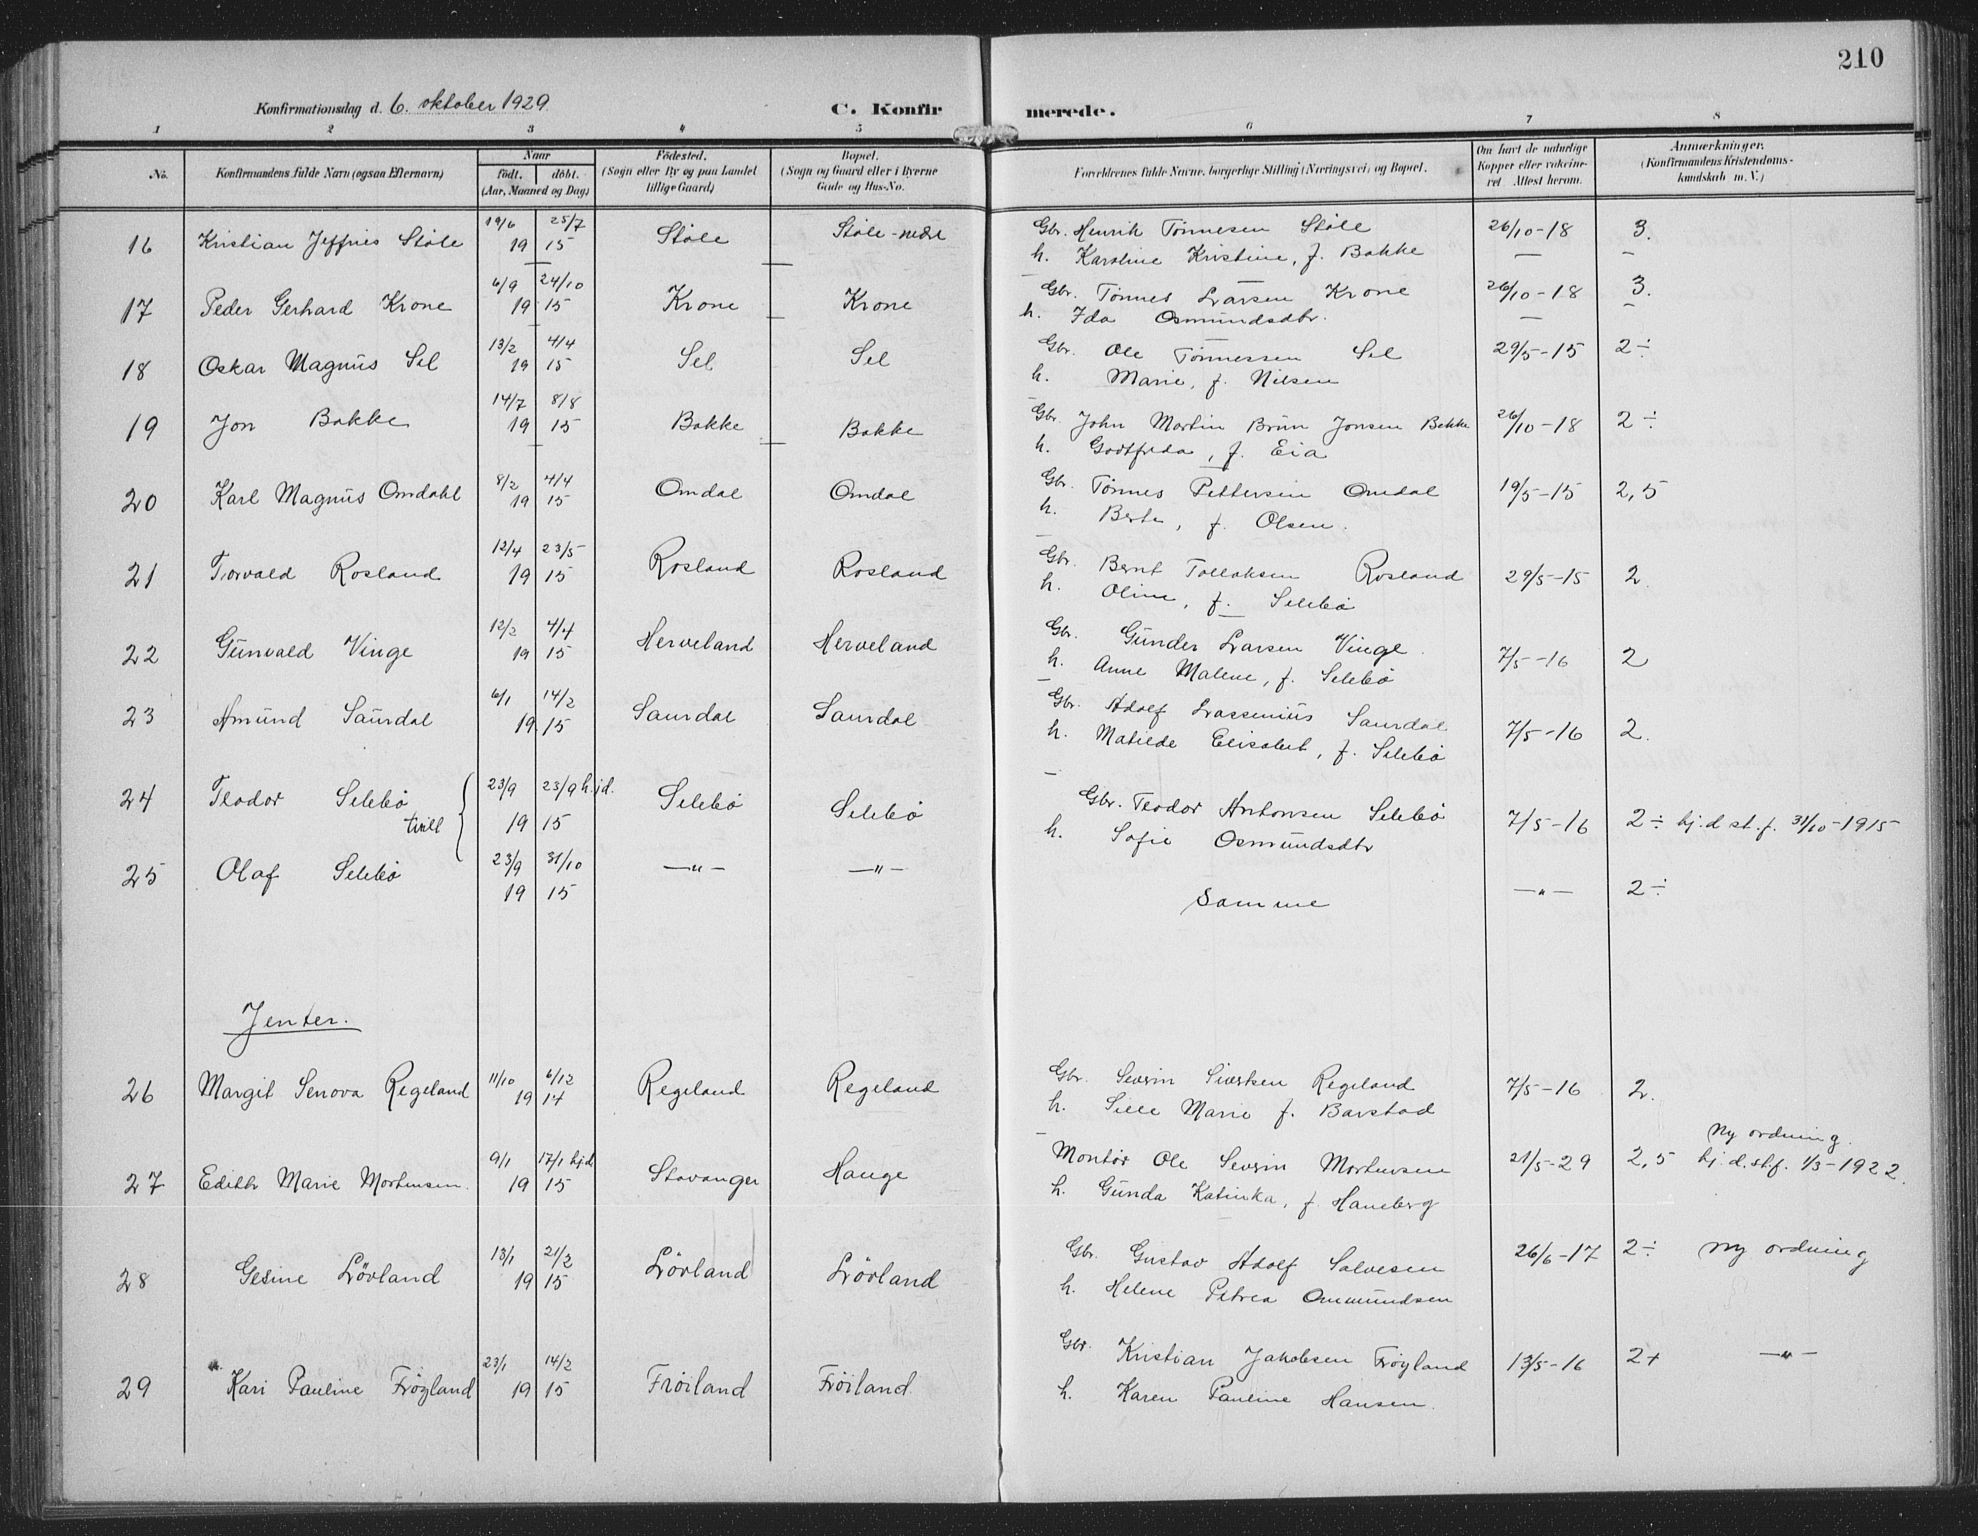 210
Konfirmationsdag d. 6. oktober 1929
C. Konfirmerede.
1 2 3 4 5 6 7 8
No. Konfirmandens fulde Navn (ogsaa Efternavn) Naar født. døbt. (Aar, Maaned og Dag) Fødested. (Sogn eller By og paa Landet tillige Gaard) Bopæl. (Sogn og Gaard eller i Byerne Gade og Hus-No. Forældrenes fulde Navne, borgerlige Stilling (Næringsvei) og Bopæl. Om havt de naturlige Kopper eller vakcineret Attest herom. Anmærkninger. (Konfirmandens Kristendomskundskab m. V.)
16 Kristian Jeffries Støle 19/6 19 25/7 15 Støle Støle-nedre Gbr. Henrik Tönnesen Støle 26/10-18 3.
h. Karoline Kristine, f. Bakke
17 Peder Gerhard Krone 6/9 19 24/10 15 Krone Krone Gbr. Tönnes Larsen Krone 26/10-18 3.
h. Ida Osmundsdtr.
18 Oskar Magnus Sel 13/2 19 4/4 15 Sel Sel Gbr. Ole Tönnessen Sel 29/5-15 2÷
h. Marie, f. Nilsen
19 Jon Bakke 14/7 19 8/8 15 Bakke Bakke Gbr. John Martin Brun Jonsen Bakke 26/10-18 2÷
h. Godtfreda, f. Eia
20 Karl Magnus Omdahl 8/2 19 4/4 15 Omdal Omdal Gbr. Tönnes Pettersen Omdal 19/5-15 2,5
h. Berte, f. Olsen.
21 Torvald Rosland 12/4 19 23/5 15 Rosland Rosland Gbr. Bernt Tollaksen Rosland 29/5-15 2.
h. Oline, f. Selebö
22 Gunvald Vinge 12/2 19 4/4 15 Herveland Herveland Gbr. Gunder Larsen Vinge. 7/5-16 2
h. Anne Malene, f. Selebö
23 Amund Saurdal 6/1 19 14/2 15 Saurdal Saurdal Gbr. Adolf Lassenius Saurdal 7/5-16 2.
h. Matilde Elisabet, f. Selebö
24 Teodor Selebö tvill 23/9 19 23/9 h.jd. 15 Selebö Selebö Gbr. Teodor Antonsen Selebö 7/5-16 2÷ hj.d st.f. 31/10-1915
h. Sofie Osmundsdtr
25 Olaf Selebö 23/9 19 31/10 15 —"— —"— Samme —"— 2÷
Jenter.
26 Margit Senova Regeland 11/10 19 6/12 14 Regeland Regeland Gbr. Severin Sivertsen Regeland 7/5-16 2.
h. Sille Marie f. Barstad
27 Edith Marie Mortensen. 9/1 19 17/1 hjd 15 Stavanger Hauge Montör Ole Severin Mortensen 21/5-29 2,5 Ny ordning. hj.d.st.f. 1/3-1922.
h. Gunda Katinka, f. Haneberg
28 Gesine Lövland 13/1 19 21/2 15 Lövland Lövland Gbr. Gustav Adolf Salvesen 26/6-17 2÷ Ny ordning
h. Helene Petrea Ommundsen
29 Kari Pauline Fröyland 23/1 19 14/2 15 Fröiland Fröiland. Gbr Kristian Jakobsen Fröyland 13/5-16 2+ —"—
h. Karen Pauline Hansen.